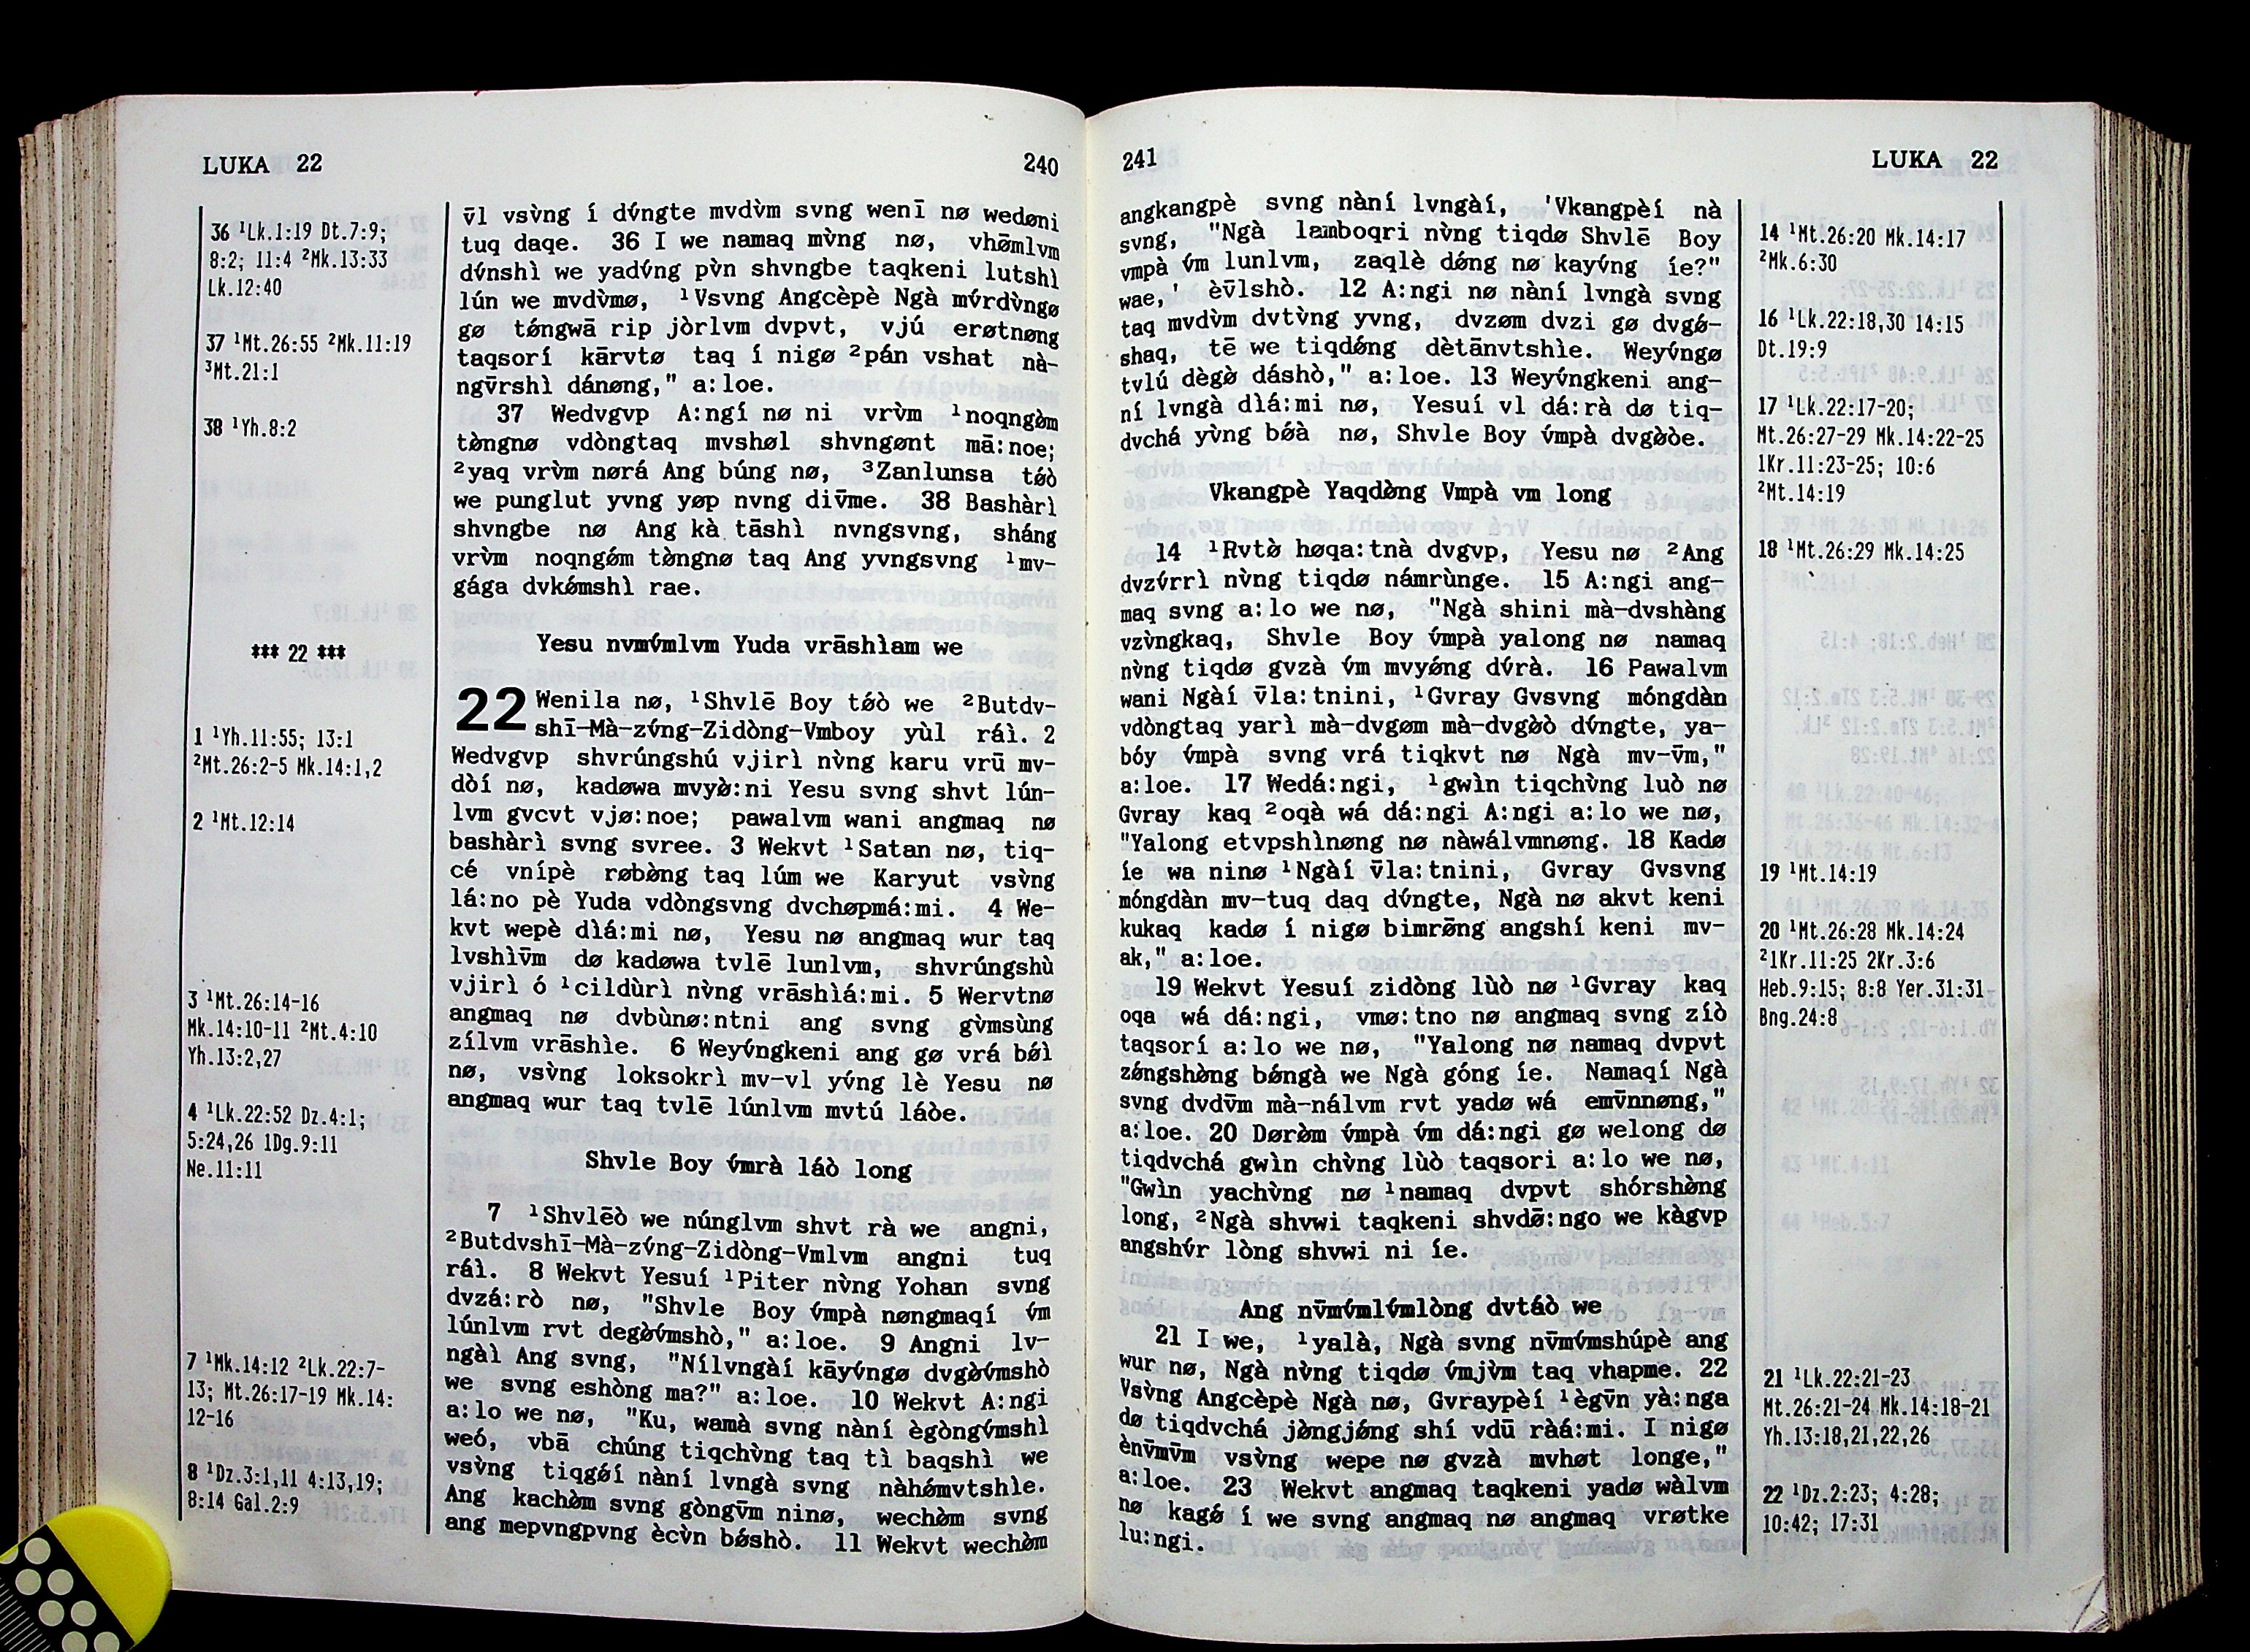 LUKA 22
240
36 ¹Lk.1:19 Dt.7:9;
8:2; 11:4 ²Mk.13:33
Lk.12:40
37 ¹Mt.26:55 ²Mk.11:19
³Mt.21:1
38 ¹Yh.8:2
*** 22 ***
1 ¹Yh.11:55; 13:1
²Mt.26:2-5 Mk.14:1,2
2 ¹Mt.12:14
3 ¹Mt.26:14-16
Mk.14:10-11 ²Mt.4:10
Yh.13:2,27
4 ¹Lk.22:52 Dz.4:1;
5:24,26 1Dg.9:11
Ne.11:11
7 ¹Mk.14:12 ²Lk.22:7-
13; Mt.26:17-19 Mk.14:
12-16
8 ¹Dz.3:1,11 4:13,19;
8:14 Gal.2:9
v̄l vsv̀ng í dv́ngte mvdv̀m svng wenī nø wedøni
tuq daqe. 36 I we namaq mv̀ng nø, vhø̄mlvm
dv́nshì we yadv́ng pv̀n shvngbe taqkeni lutshì
lún we mvdv̀mø, ¹Vsvng Angcèpè Ngà mv́rdv̀ngø
gø tǿngwā rip jòrlvm dvpvt, vjú erøtnøng
taqsorí kārvtø taq í nigø ²pán vshat nà-
ngv̄rshì dánøng," a:loe.
37 Wedvgvp A:ngí nø ni vrv̀m ¹noqngø̀m
tø̀ngnø vdòngtaq mvshøl shvngønt mā:noe;
²yaq vrv̀m nørá Ang búng nø, ³Zanlunsa tǿò
we punglut yvng yøp nvng div̄me. 38 Bashàrì
shvngbe nø Ang kà tāshì nvngsvng, sháng
vrv̀m noqngǿm tø̀ngnø taq Ang yvngsvng ¹mv-
gága dvkǿmshì rae.
Yesu nvmv́mlvm Yuda vrāshìam we
22 Wenila nø, ¹Shvlē Boy tǿò we ²Butdv-
shī-Mà-zv́ng-Zidòng-Vmboy yùl ráì. 2
Wedvgvp shvrúngshú vjirì nv̀ng karu vrū mv-
dòí nø, kadøwa mvyø̀:ni Yesu svng shvt lún-
lvm gvcvt vjø:noe; pawalvm wani angmaq nø
bashàrì svng svree. 3 Wekvt ¹Satan nø, tiq-
cé vnípè røbø̀ng taq lúm we Karyut vsv̀ng
lá:no pè Yuda vdòngsvng dvchøpmá:mi. 4 We-
kvt wepè dìá:mi nø, Yesu nø angmaq wur taq
lvshìv̄m dø kadøwa tvlē lunlvm, shvrúngshù
vjirì ó ¹cildùrì nv̀ng vrāshìá:mi. 5 Wervtnø
angmaq nø dvbùnø:ntni ang svng gv̀msùng
zílvm vrāshìe. 6 Weyv́ngkeni ang gø vrá bǿì
nø, vsv̀ng loksokrì mv-vl yv́ng lè Yesu nø
angmaq wur taq tvlē lúnlvm mvtú láòe.
Shvle Boy v́mrà láò long
7 ¹Shvlēò we núnglvm shvt rà we angni,
²Butdvshī-Mà-zv́ng-Zidòng-Vmlvm angni tuq
ráì. 8 Wekvt Yesuí ¹Piter nv̀ng Yohan svng
dvzá:rò nø, "Shvle Boy v́mpà nøngmaqí v́m
lúnlvm rvt degø̀v́mshò," a:loe. 9 Angni lv-
ngàì Ang svng, "Nílvngàí kāyv́ngø dvgø̀v́mshò
we svng eshòng ma?" a:loe. 10 Wekvt A:ngi
a:lo we nø, "Ku, wamà svng nàní ègòngv́mshì
weó, vbā chúng tiqchv̀ng taq tì baqshì we
vsv̀ng tiqgǿí nàní lvngà svng nàhǿmvtshìe.
Ang kachø̀m svng gòngv̄m ninø, wechø̀m svng
ang mepvngpvng ècv̀n bǿshò. 11 Wekvt wechø̀m
241
LUKA 22
angkangpè svng nàní lvngàí, 'Vkangpèí nà
svng, "Ngà lamboqri nv̀ng tiqdø Shvlē Boy
vmpà v́m lunlvm, zaqlè dǿng nø kayv́ng íe?"
wae,' èv̄lshò. 12 A:ngi nø nàní lvngà svng
taq mvdv̀m dvtv̀ng yvng, dvzøm dvzi gø dvgǿ-
shaq, tē we tiqdǿng dètānvtshìe. Weyv́ngø
tvlú dègø̀ dáshò," a:loe. 13 Weyv́ngkeni ang-
ní lvngà dìá:mi nø, Yesuí vl dá:rà dø tiq-
dvchá yv̀ng bǿà nø, Shvle Boy v́mpà dvgø̀òe.
Vkangpè Yaqdø̀ng Vmpà vm long
14 ¹Rvtø̀ høqa:tnà dvgvp, Yesu nø ²Ang
dvzv́rrì nv̀ng tiqdø námrùnge. 15 A:ngi ang-
maq svng a:lo we nø, "Ngà shini mà-dvshàng
vzv̀ngkaq, Shvle Boy v́mpà yalong nø namaq
nv̀ng tiqdø gvzà v́m mvyǿng dv́rà. 16 Pawalvm
wani Ngàí v̄la:tnini, ¹Gvray Gvsvng móngdàn
vdòngtaq yarì mà-dvgøm mà-dvgø̀ò dv́ngte, ya-
bóy v́mpà svng vrá tiqkvt nø Ngà mv-v̄m,"
a:loe. 17 Wedá:ngi, ¹gwìn tiqchv̀ng luò nø
Gvray kaq ²oqà wá dá:ngi A:ngi a:lo we nø,
"Yalong etvpshìnøng nø nàwálvmnøng. 18 Kadø
íe wa ninø ¹Ngàí v̄la:tnini, Gvray Gvsvng
móngdàn mv-tuq daq dv́ngte, Ngà nø akvt keni
kukaq kadø í nigø bimrø̄ng angshí keni mv-
ak," a:loe.
19 Wekvt Yesuí zidòng lùò nø ¹Gvray kaq
oqa wá dá:ngi, vmø:tno nø angmaq svng zíò
taqsorí a:lo we nø, "Yalong nø namaq dvpvt
zǿngshø̀ng bǿngà we Ngà góng íe. Namaqí Ngà
svng dvdv̄m mà-nálvm rvt yadø wá emv̄nnøng,"
a:loe. 20 Dørø̀m v́mpà v́m dá:ngi gø welong dø
tiqdvchá gwìn chv̀ng lùò taqsori a:lo we nø,
"Gwìn yachv̀ng nø ¹namaq dvpvt shórshø̀ng
long, ²Ngà shvwi taqkeni shvdø̄:ngo we kàgvp
angshv́r lòng shvwi ni íe."
Ang nv̄mv́mlv́mlòng dvtáò we
21 I we, ¹yalà, Ngà svng nv̄mv́mshúpè ang
wur nø, Ngà nv̀ng tiqdø v́mjv̀m taq vhapme. 22
Vsv̀ng Angcèpè Ngà nø, Gvraypèí ¹ègv̄n yà:nga
dø tiqdvchá jø̀ngjǿng shí vdū ràá:mi. I nigø
ènv̄mv̄m vsv̀ng wepe nø gvzà mvhøt longe,"
a:loe. 23 Wekvt angmaq taqkeni yadø wàlvm
nø kagǿ í we svng angmaq nø angmaq vrøtke
lu:ngi.
14 ¹Mt.26:20 Mk.14:17
²Mk.6:30
16 ¹Lk.22:18,30 14:15
Dt.19:9
17 ¹Lk.22:17-20;
Mt.26:27-29 Mk.14:22-25
1Kr.11:23-25; 10:6
²Mt.14:19
18 ¹Mt.26:29 Mk.14:25
19 ¹Mt.14:19
20 ¹Mt.26:28 Mk.14:24
²1Kr.11:25 2Kr.3:6
Heb.9:15; 8:8 Yer.31:31
Bng.24:8
21 ¹Lk.22:21-23
Mt.26:21-24 Mk.14:18-21
Yh.13:18,21,22,26
22 ¹Dz.2:23; 4:28;
10:42; 17:31